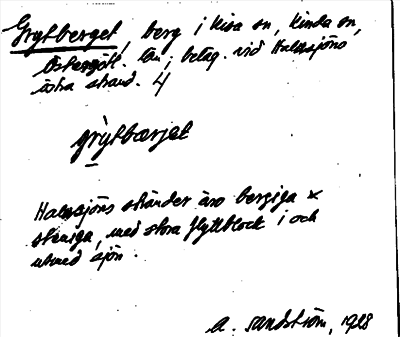 Grytberget, berg i Kisa sn, Kinda hd,
Östergötl. län; beläg. vid Hallsjöns
östra strand. 4
grytbærjet
Hallsjöns stränder äro bergiga &
steniga, med stora flyttblock i och
utmed sjön.
A. Sandström, 1928